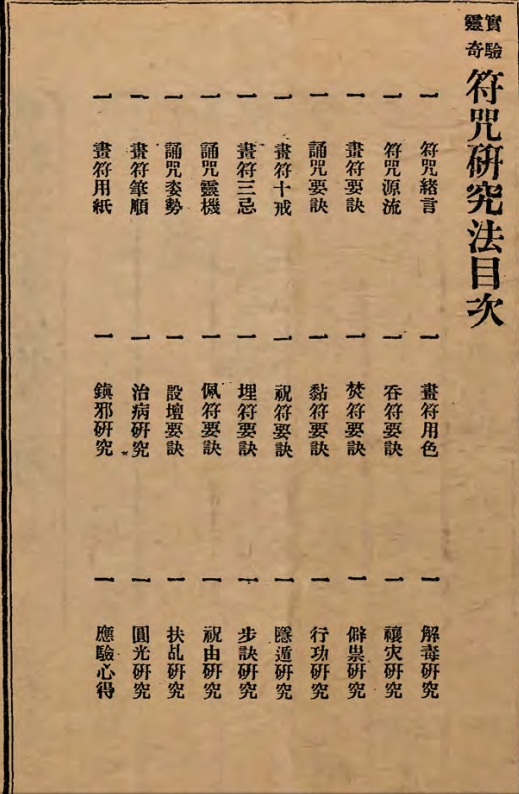 實驗
靈奇
符咒硏究法目次
一 符咒緒言
一 符咒源流
一 畫符要訣
一 誦咒要訣
一 畫符十戒
一 畫符三忌
一 誦咒靈機
一 誦咒姿勢
一 畫符筆順
一 畫符用紙
一 畫符用色
一 吞符要訣
一 焚符要訣
一 黏符要訣
一 祝符要訣
一 埋符要訣
一 佩符要訣
一 設壇要訣
一 治病硏究
一 鎭邪硏究
一 解毒硏究
一 禳灾硏究
一 僻祟硏究
一 行功硏究
一 隱遁硏究
一 步訣硏究
一 祝由硏究
一 扶乩硏究
一 圓光硏究
一 應驗心得